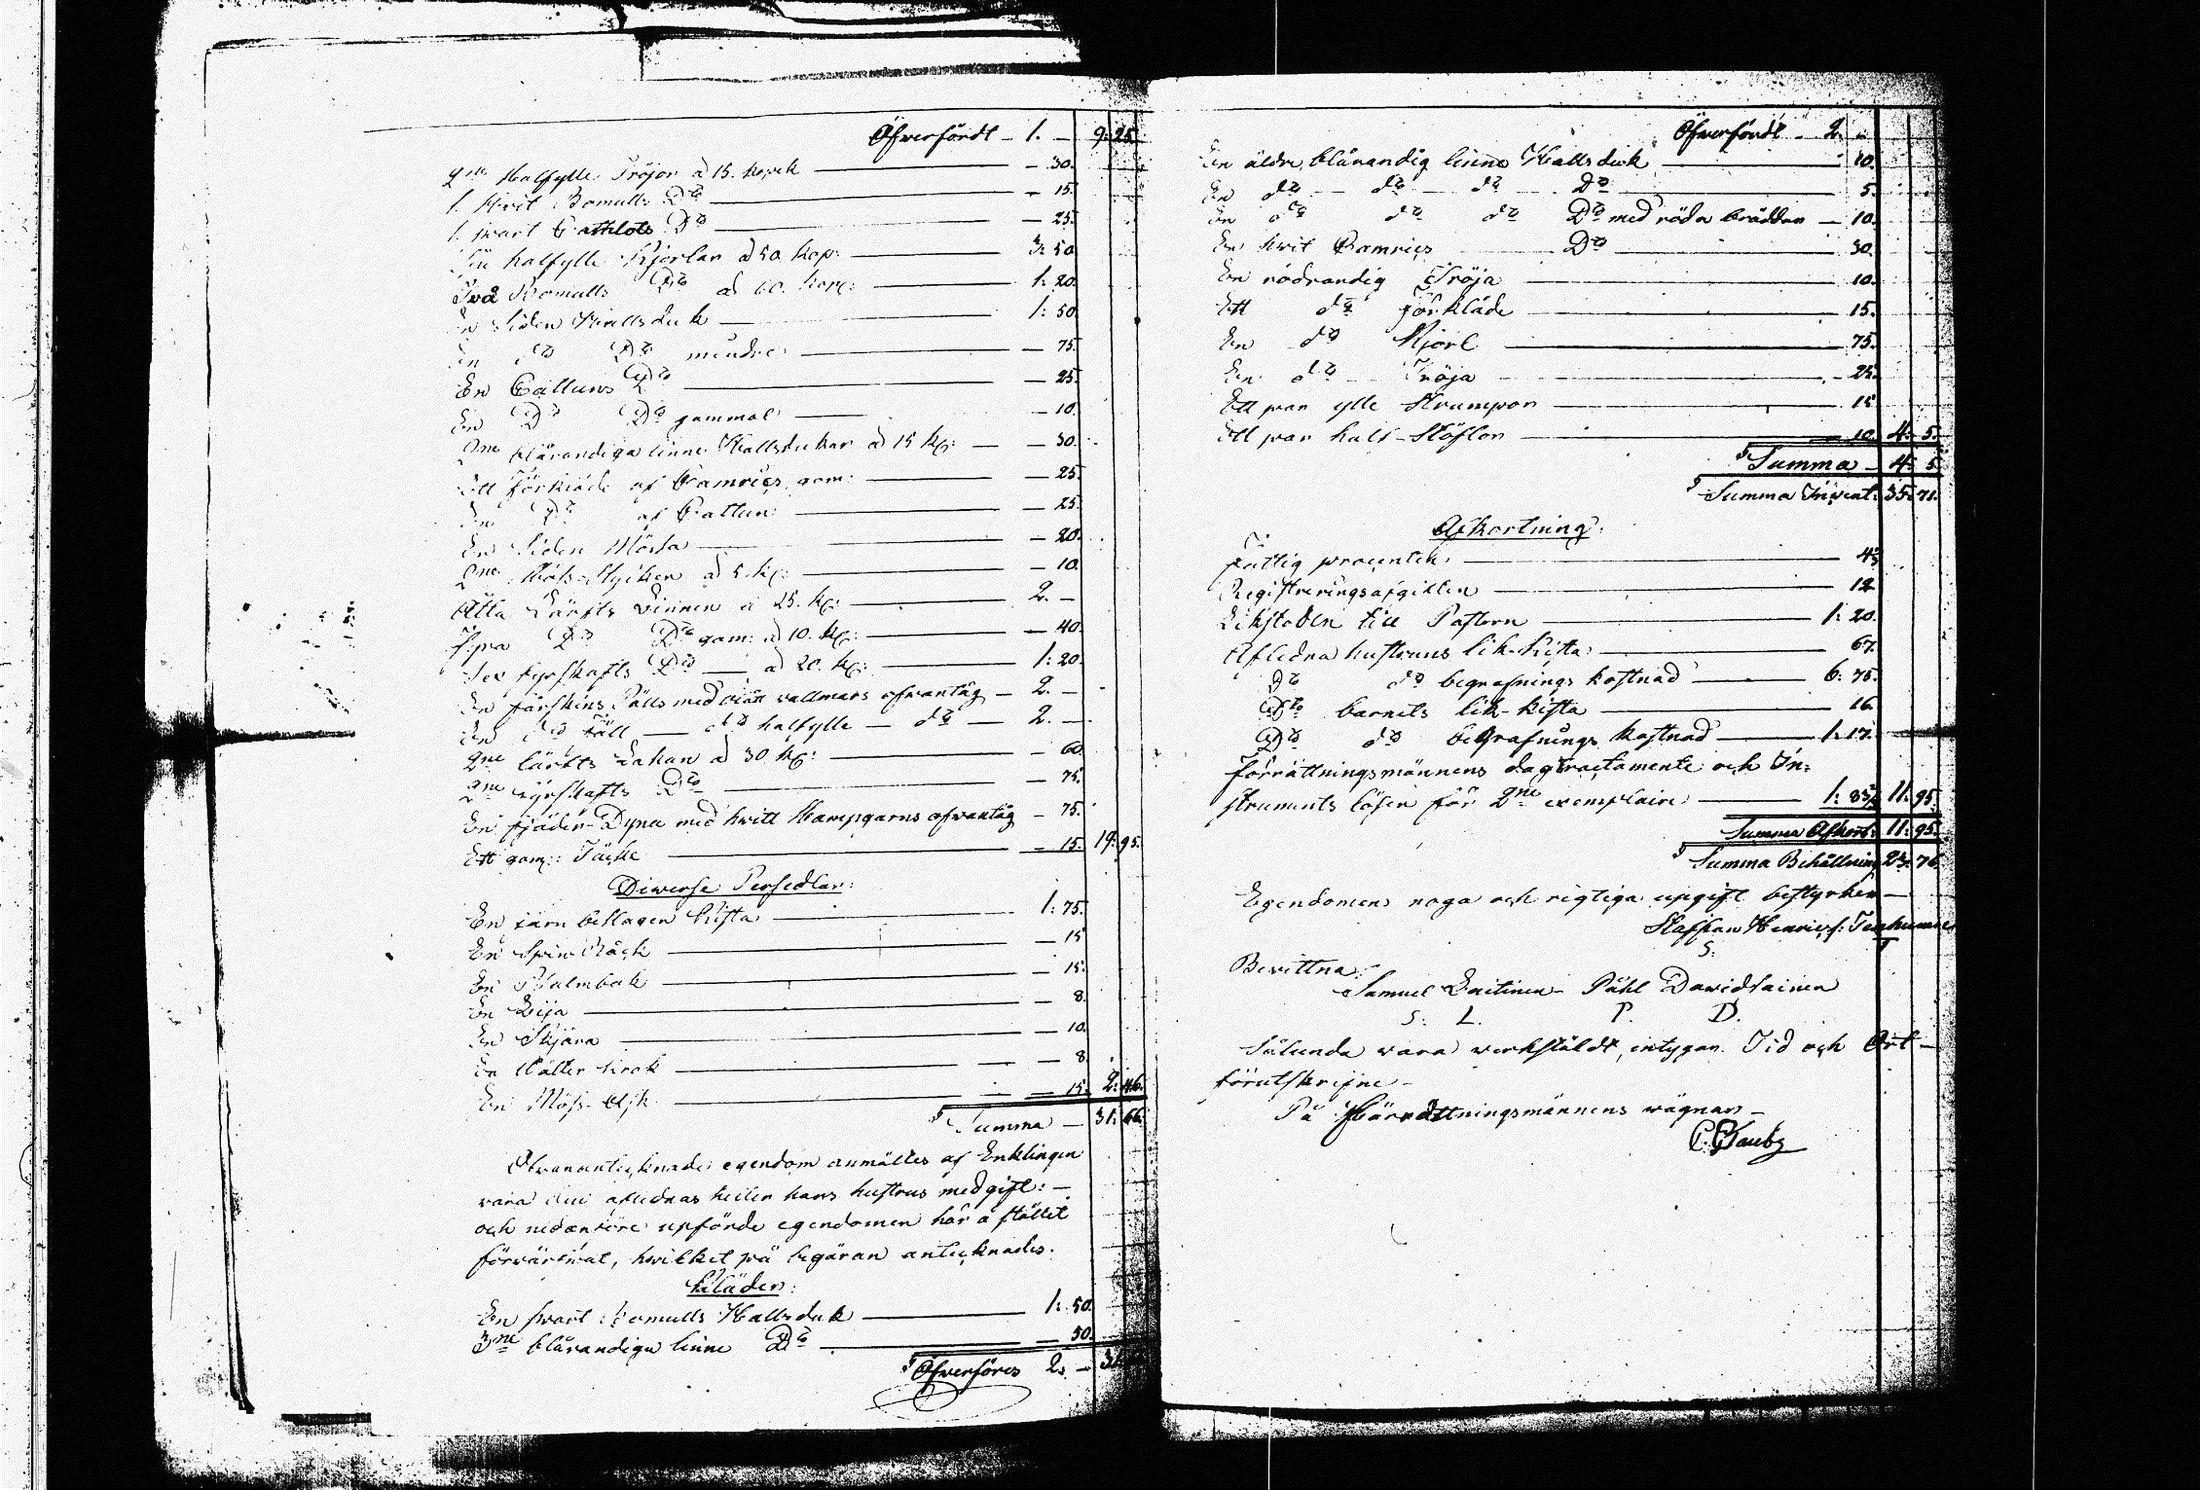 Öfverfördt - 1. - 9: 25.
2ne Halfylle Tröjor à 15. kopek - 30.
1. Hvit Bomulls Do - 15.
1. svart Do - 25.
halfylle Kjortlar à 50 kop: 3: 50
Två Bomulls Do à 60. kop: 1: 20.
En Siden Hallsduk 1: 50.
En do Do mindre - 75.
En Cattuns Do - 25.
En Do Do gammal - 10.
2ne blårandiga linne Hallsdukar à 15 kp: - 30.
Ett förkläde af Camrics gam: - 25.
Do af Cattun - 25.
En Siden Mössa - 20.
2ne Möss-Stycken à 5. kp: - 10.
Åtta Lärfts Linnen à 25. kp: 2. -
Do Do gam: à 10. kp: - 40.
Sex fyrskafts Do à 20. kp: 1: 20.
En fårskins Pälls med vallmars öfvantåg - 2. -
En do Fäll do halfylle - do - 2. -
2ne lärfts Lakan à 30 kp: - 60.
2ne fyrskafts Do - 75.
En fjäder-Dyna med hwitt Hampgarns öfvantåg - 75.
Ett gam: Täcke - 15. 19: 95.
Diverse Persedlar:
En järn beslagen Kista 1: 75.
En Spin Råck - 15
En Psalmbok - 15.
En Lija - 8.
En Skjära - 10.
En - 8.
En Möss-Ask - 15. 2: 46.
Summa - 31: 66.
Ofvanantecknade egendom anmältes af Enklingen
vara dess aflednas hustrus medgift: -
och nedanföre upförde egendomen här å stället
förvärfvat, hvilket på begäran antecknades.
Kläder:
En svart Bomulls Hallsduk 1: 50.
3ne blårandiga linne Do - 50.
Öfverföres 2. -
Öfverfördt - 2. -
En äldre blårandig linne Hallsduk - 10.
En do - do - do - Do 5.
En do do do Do med röda bräddar - 10.
En hvit Camrics Do 30.
En rödrandig Tröja 10.
Ett do förkläde 15.
En do Kjorl 75.
En do Tröja 25.
Ett par ylle Strumpor 15
Ett par half-Stöflor 10. 4: 5.
Summa - 4: 5.
Summa Invent: 35: 71.
Afkortning:
Fattig procenten 4½
Registreringsafgiften 12
Likstolen till Pastorn 1: 20.
Aflidna hustruns lik-kista 67.
Do do begrafnings kostnad 6: 75.
Do barnets lik-kista 16.
Do do begrafnings kostnad 1: 17.
Förrättningsmännens dagtractamente och In-
struments lösen för 2ne exemplaire 1: 83½ 11: 95.
Summa Afkort: 11: 95.
Summa Behållning 23: 76.
Egendomens noga och rigtiga upgift bestyrker -
Staffan Henricss:
S: T
Bevittna
Samuel Laitinen - Påhl Davidsainen
S: L. P. D.
Sålunda vara verkstäldt, intygar. Tid och Ort -
förutskrifne -
På Förrättningsmännens vägnar -